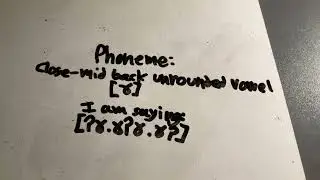 Phoneme:
Close-mid back unrounded vowel
[ɤ]
I am saying:
[ʔɤ.ɤʔɤ.ɤʔ]